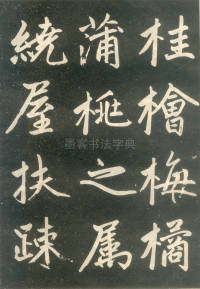 桂檜梅橘
蒲桃之属
繞屋扶疎
墨客书法字典